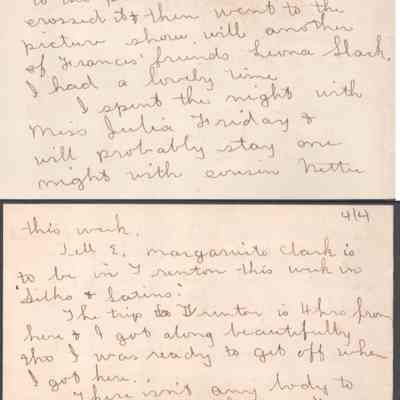 crossed it & then went to the
picture show with another
of Francis' friends Leona Slack.
I had a lovely time
I spent the night with
Miss Julia Friday &
will probably stay one
night with cousin Nettie
4/4
this week.
Tell E. Marguerite Clark is
to be in Trenton this week in
"Silks & Satins."
The trip to Trenton is 4 hrs from
here & I got along beautifully
tho I was ready to get off when
I got here.
There isn't any body to